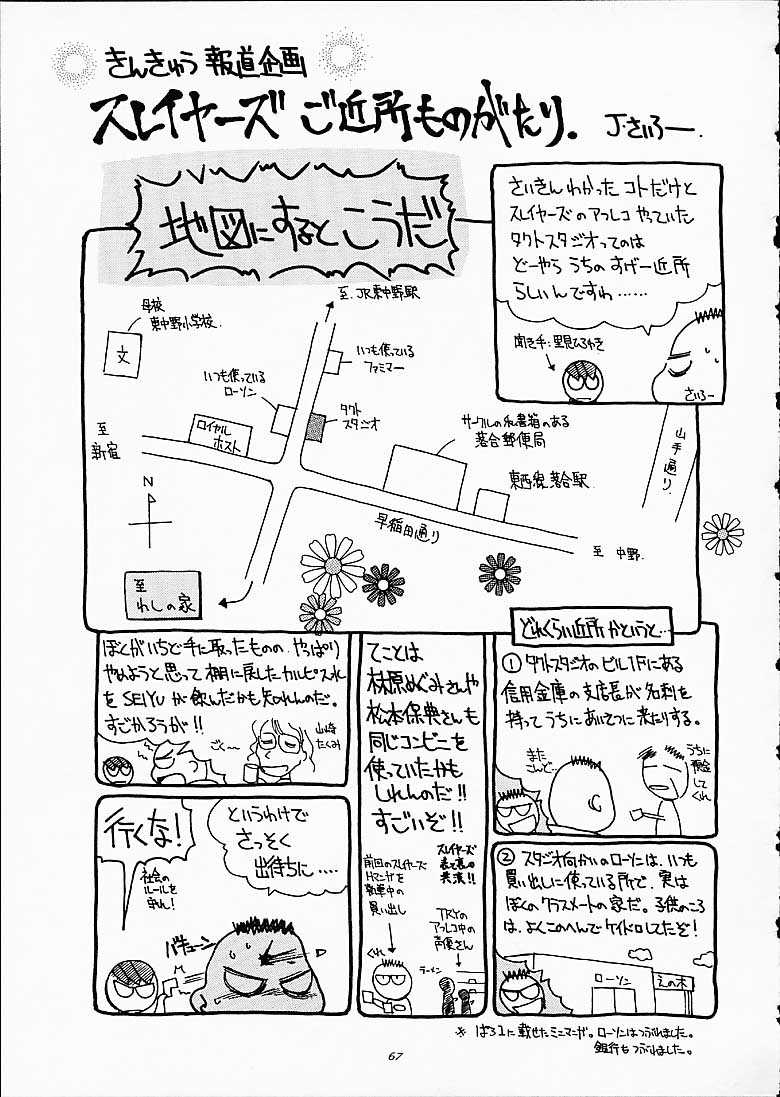 きんきゅう 報道企画
スレイヤーズ ご近所ものがたり。
J・さいろー.
地図にするとこうだ
さいきんわかったコトだけど
スレイヤーズのアフレコやっていた
タクトスタジオってのは
どーやらうちのすげー近所
らしいんですわ……
聞き手:里見ひろゆき
さいろー
至.JR東中野駅
母校
東中野小学校.
文
いつも使っている
ファミマー
いつも使っている
ローソン
タクト
スタジオ
ロイヤル
ホスト
サークルの私書箱のある
落合郵便局
東西線落合駅
山手通り
至
新宿
N
早稲田通り
至 中野.
至
わしの家
どれくらい近所かというと…
① タクトスタジオのビル1Fにある
信用金庫の支店長が名刺を
持ってうちにあいさつに来たりする。
また
さんど…
うちに
預金
して
くれ
② スタジオ向かいのローソンは、いつも
買い出しに使っている所で、実は
ぼくのクラスメートの家だ。子供のころ
は、よくこのへんでケイドロしてたぞ!
ローソン
えの木
てことは
林原めぐみさんや
松本保典さんも
同じコンビニを
使っていたかも
しれんのだ!!
すごいぞ!!
スレイヤーズ
表と裏の
共演!!
前回のスレイヤーズ
Hマンガを
執筆中の
買い出し
TRYの
アフレコ中の
声優さん
くれ
ラーメン
ぼくがいちど手に取ったものの、やっぱり
やめようと思って棚に戻したカルピスみれ
をSEIYUが飲んだかも知れんのだ。
すごかろうが!!
ごく〜
山崎
たくみ
というわけで
さっそく
出待ちに….
行くな!
社会の
ルールを
守れ!
バキューン
※ ぱろ1に載せたミニマンガ。ローソンはつぶれました。
銀行もつぶれました。
67